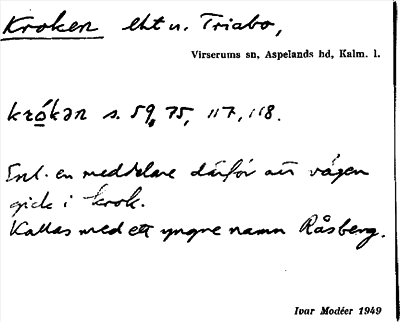 Kroken lht u. Triabo,
Virserums sn, Aspelands hd, Kalm. l.
krókən s. 59, 75, 117, 118.
Enl. en meddelare därför att vägen
gick i krok.
Kallas med ett yngre namn Råsberg.
Ivar Modéer 1949